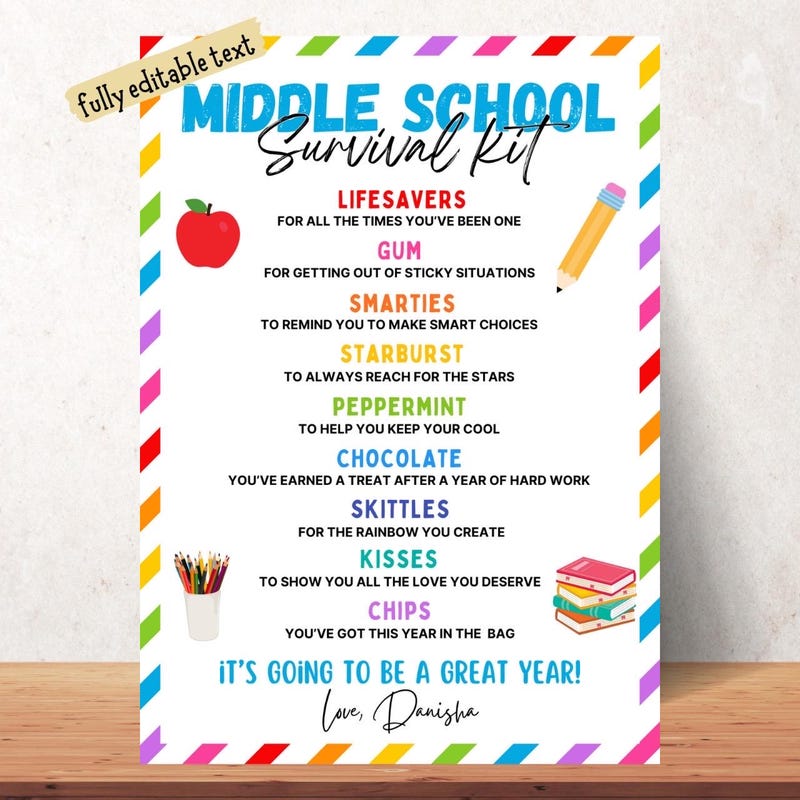 fully editable text
MIDDLE SCHOOL
Survival Kit
LIFESAVERS
FOR ALL THE TIMES YOU'VE BEEN ONE
GUM
FOR GETTING OUT OF STICKY SITUATIONS
SMARTIES
TO REMIND YOU TO MAKE SMART CHOICES
STARBURST
TO ALWAYS REACH FOR THE STARS
PEPPERMINT
TO HELP YOU KEEP YOUR COOL
CHOCOLATE
YOU'VE EARNED A TREAT AFTER A YEAR OF HARD WORK
SKITTLES
FOR THE RAINBOW YOU CREATE
KISSES
TO SHOW YOU ALL THE LOVE YOU DESERVE
CHIPS
YOU'VE GOT THIS YEAR IN THE BAG
IT'S GOING TO BE A GREAT YEAR!
Love, Danisha